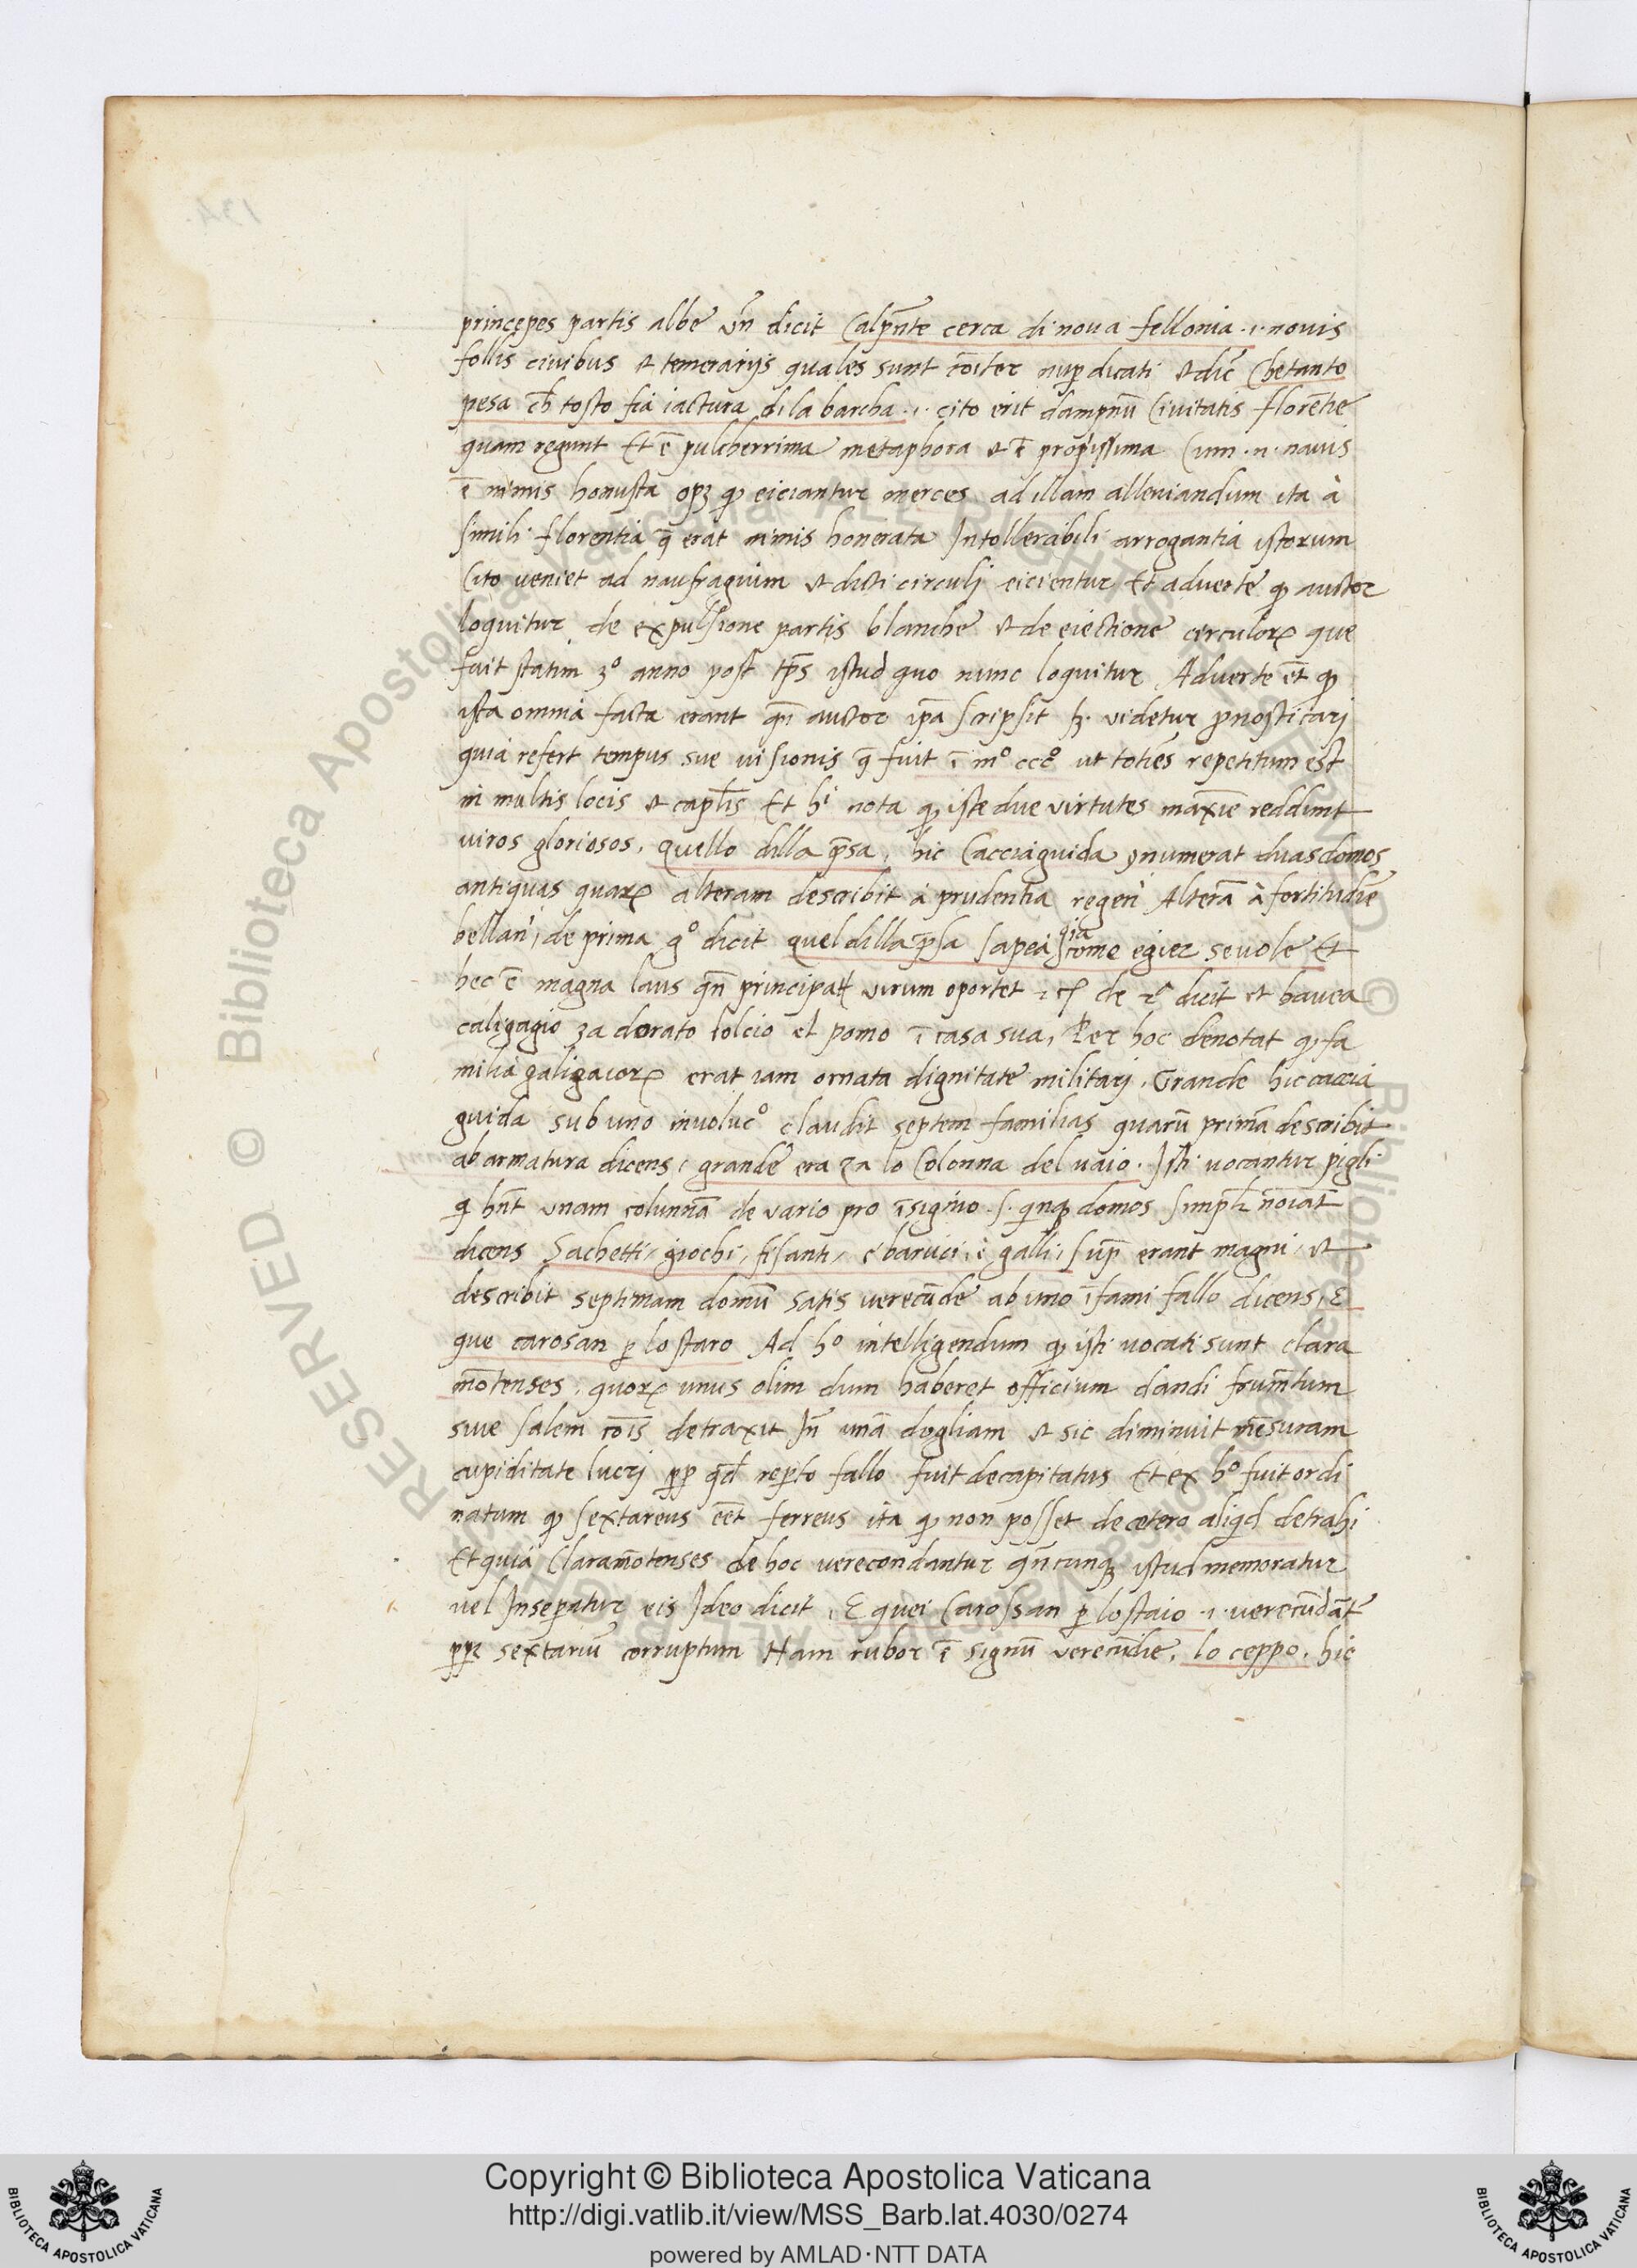 134.
princepes partis albe vn̄ dicit Calpn̄te cerca di noua fellonia .i. nouis
follis ciuibus et temerarijs quales sunt cōiter nup dicati et dic̄ Chetanto
pesa ch̄ tosto fia iactura dila barcha .i. cito erit dampnū Ciuitatis florētie
quam regunt Et ē pulcherrima metaphora et ē propiissima Cum .n. nauis
ē nimis honusta opȝ ꝙ eiciantur merces ad illam alleuiandum ita à
simili florentia q̄ erat nimis honerata Intollerabili arrogantia istorum
Cito veniet ad naufragium et dicti circuli eicientur Et aduerte ꝙ auctor
loquitur de expulsione partis blanche et de eiectione cerculoꝝ que
fuit statim 3º anno post tp̄s istud quo nunc loquitur Aduerte et̄ ꝙ
ista omnia facta erant qn̄ auctor ip̄a scripsit sȝ. videtur ꝓnosticarj
quia refert tempus sue uisionis q̄ fuit ī mº cccº ut toties repetitum est
in multis locis et capl̄is Et hⁱ nota ꝙ iste due virtutes maxīe reddunt
viros gloriosos, quello dilla p̄sa, hic Cacciaguida ꝯnumerat duas domos
antiquas quaꝝ alteram describit à prudentia regen̄ Alterā à fortitudīe
bellan̄, de prima gº dicit quel dilla p̄sa sapea gia come egier seuole Et
hec ē magna laus qn̄ principat virum oportet ⁊ cꝭ de 2ª dicit et hauea
caligagio za dorato lolcio el pomo ī casa sua, Per hoc denotat ꝙ fa
milia galigaioꝝ erat iam ornata dignitate militarj. Grande hic caccia
guida sub uno inuolucº claudit septem familias quarū primā describit
ab armatura dicens, grande era za lo Colonna del uaio. Isti uocantur pigli
q hn̄t vnam colunnā de vario pro īsignio .s. qīnqȝ domos simpl̄r noīat
dicens Sachetti, giochi, fisanti, e baruci, e galli, sup̄ erant magni, et
describit septimam domū satis verecūde ab uno īfami fallo dicens, E
que carosan ꝑ lo staro Ad hº intelligendum ꝙ isti uocati sunt clara
mōtenses, quoꝝ unus olim dum haberet officium dandi frum̄tum
siue salem cōīs detraxit In̄ unā dogliam et sic diminuit mēsuram
cupiditate lucrj pp qd̄ rep̄to fallo fuit decapitatus Et ex hº fuit ordi
natum ꝙ sextareus eēt ferreus ita ꝙ non posset de cetero aliqd detrahi
Et quia Claramōtenses de hoc verecondantur qn̄cunqȝ istud memoratur
vel Inseperatur eis Ideo dicit, E quei Carossan ꝑ lo staio .i. verecūdāt
ppꝛ sextariū corruptum Nam rubor ē signū verecūdie, lo ceppo, hic
© Biblioteca Apostolica Vaticana
ALL RIGHTS RESERVED
Copyright © Biblioteca Apostolica Vaticana
http://digi.vatlib.it/view/MSS_Barb.lat.4030/0274
powered by AMLAD·NTT DATA
BIBLIOTECA APOSTOLICA VATICANA
BIBLIOTECA APOSTOLICA VATICANA